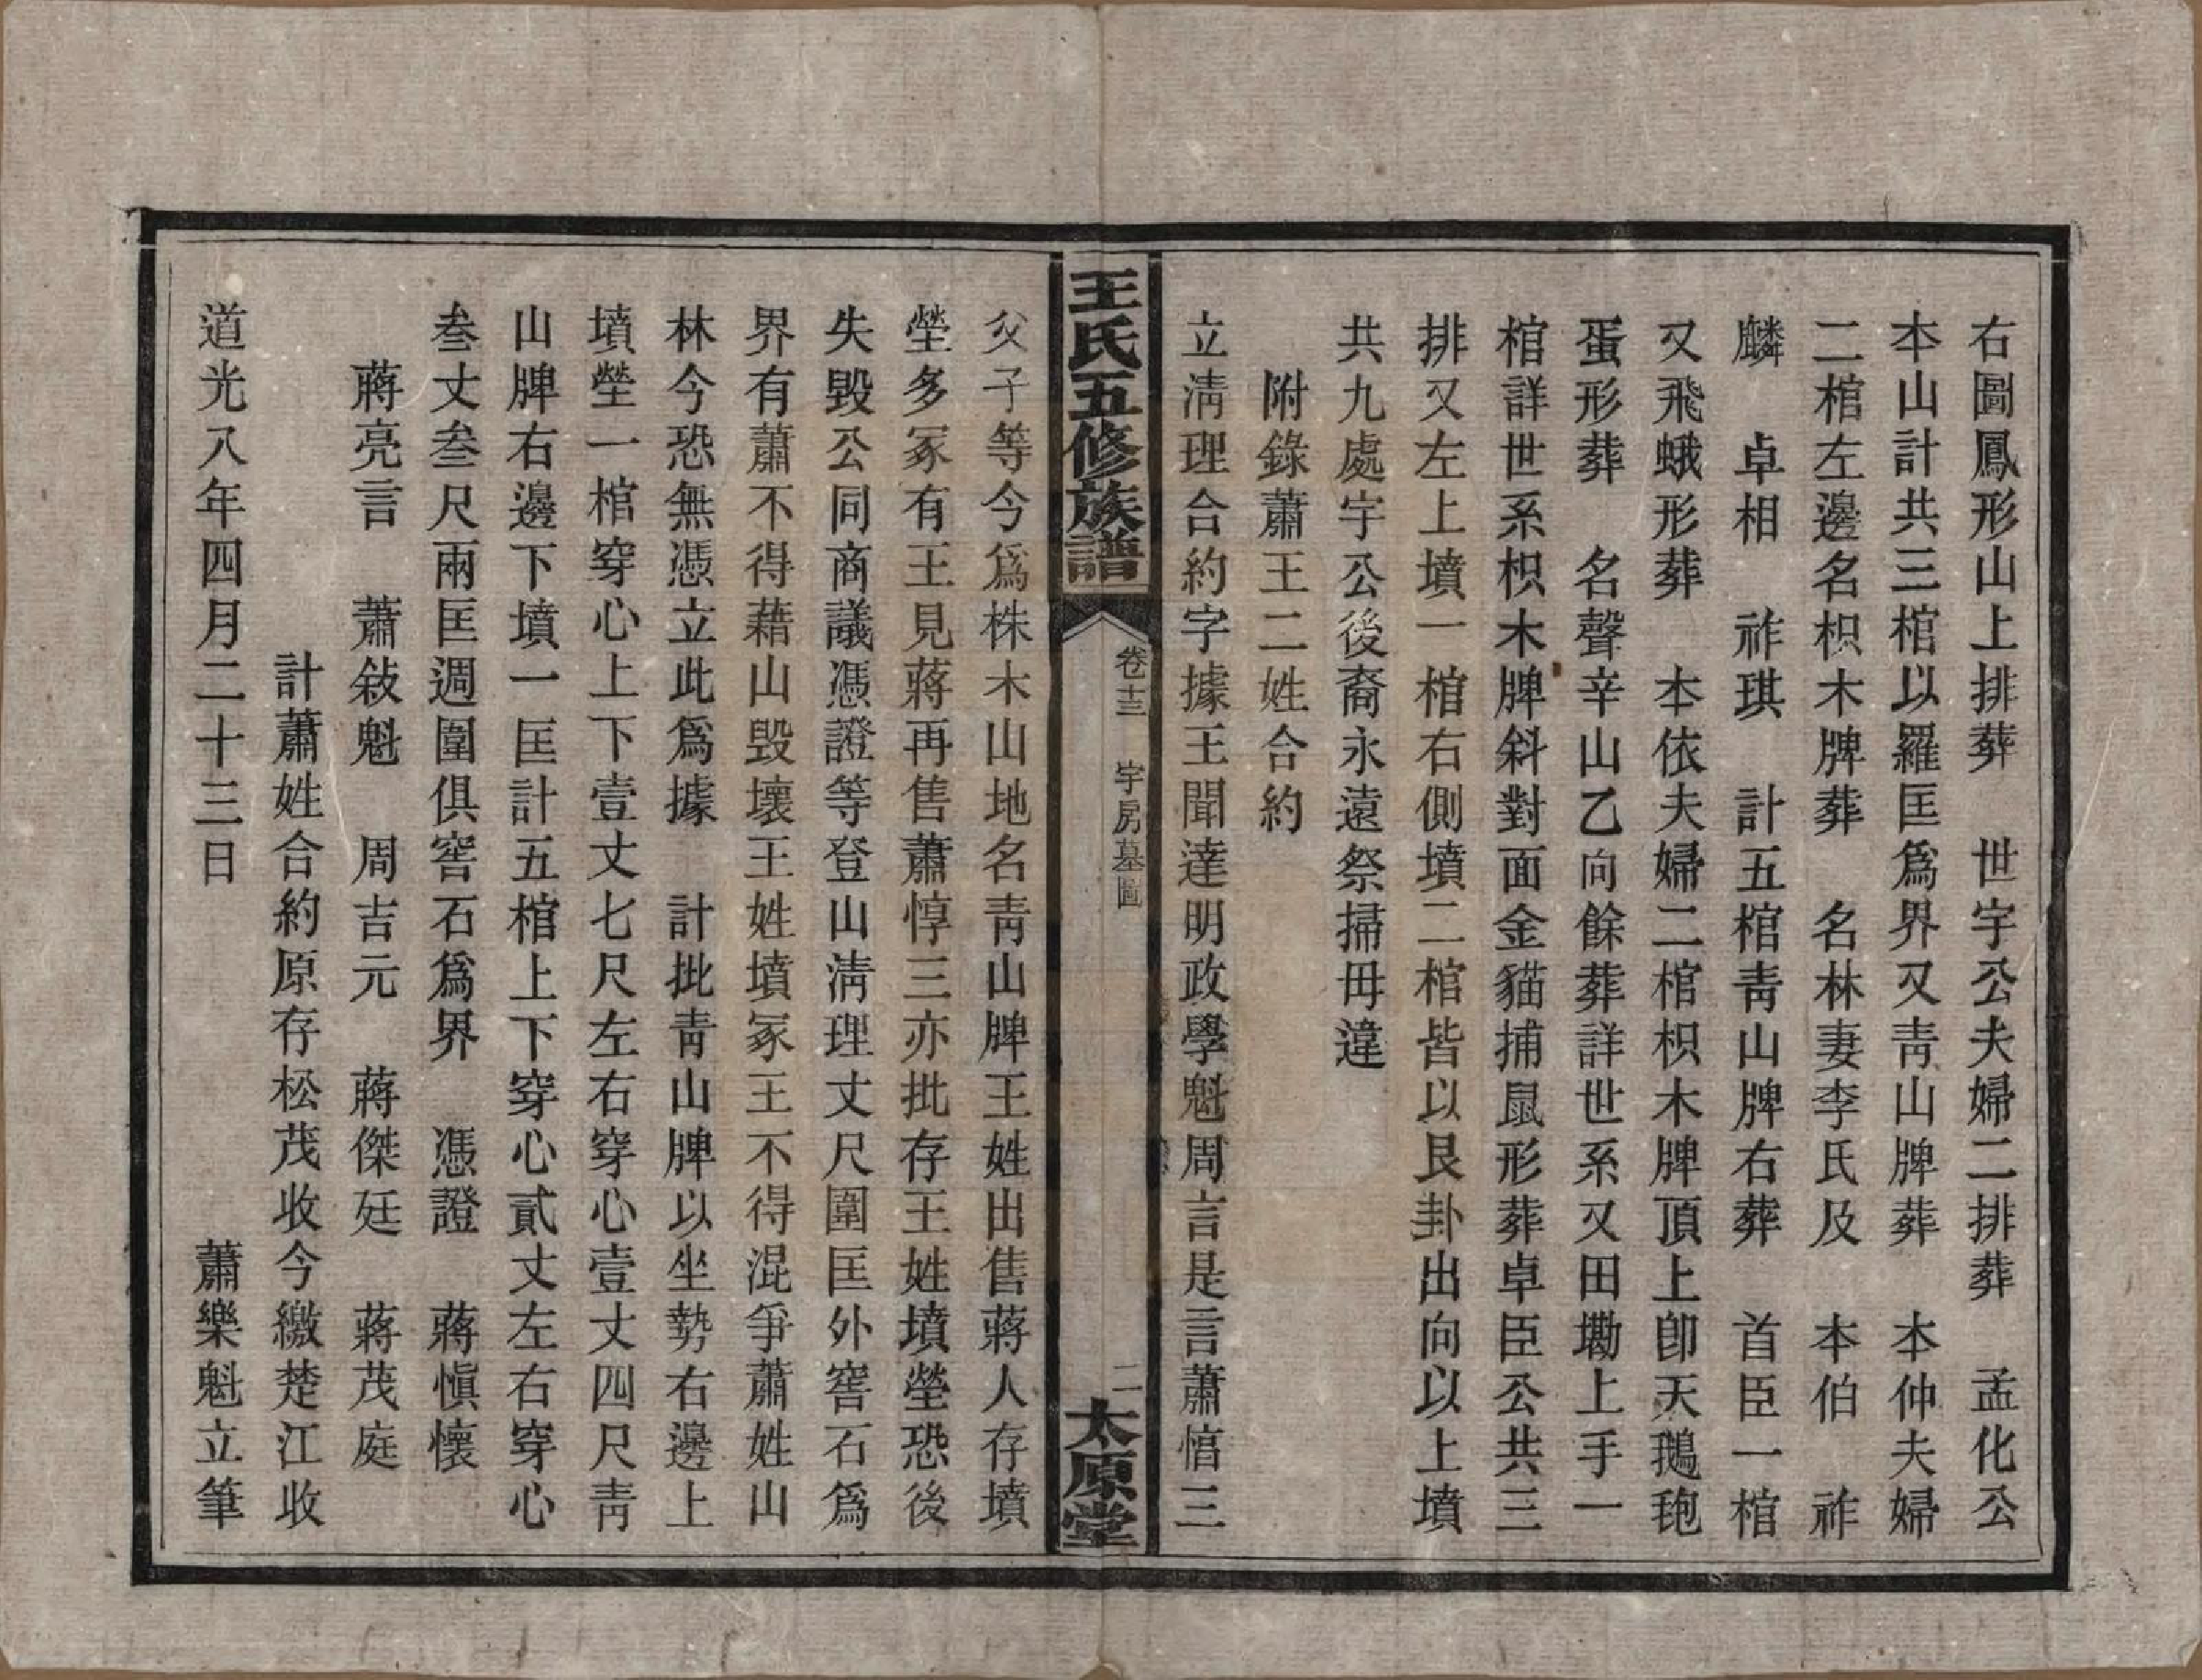 右圖鳳形山上排葬　世宇公夫婦二排葬　孟化公
本山計共三棺以羅匡爲界又靑山牌葬　本仲夫婦
二棺左邊名枳木牌葬　名林妻李氏及　本伯　祚
麟　卓相　祚琪　計五棺靑山牌右葬　首臣一棺
又飛蛾形葬　本依夫婦二棺枳木牌頂上卽天鵝䎂
蛋形葬　名聲辛山乙向餘葬詳世系又田墈上手一
棺詳世系枳木牌斜對面金貓捕鼠形葬卓臣公共三
排又左上墳一棺右側墳二棺皆以艮卦出向以上墳
共九處宇公後裔永遠祭掃毋違
附錄蕭王二姓合約
立淸理合約字據王聞達明政學魁周言是言蕭惛三
王氏五修族譜
卷十三　宇房墓圖
二
太原堂
父子等今爲株木山地名靑山牌王姓出售蔣人存墳
塋多冢有王見蔣再售蕭惇三亦批存王姓墳塋恐後
失毀公同商議憑證等登山淸理丈尺圍匡外窖石爲
界有蕭不得藉山毀壞王姓墳冢王不得混爭蕭姓山
林今恐無憑立此爲據　計批靑山牌以坐勢右邊上
墳塋一棺穿心上下壹丈七尺左右穿心壹丈四尺靑
山牌右邊下墳一匡計五棺上下穿心貳丈左右穿心
叁丈叁尺兩匡週圍俱窖石爲界　憑證　蔣愼懷
蔣亮言　蕭敍魁　周吉元　蔣傑廷　蔣茂庭
計蕭姓合約原存松茂收今繳楚江收
道光八年四月二十三日　蕭樂魁立筆